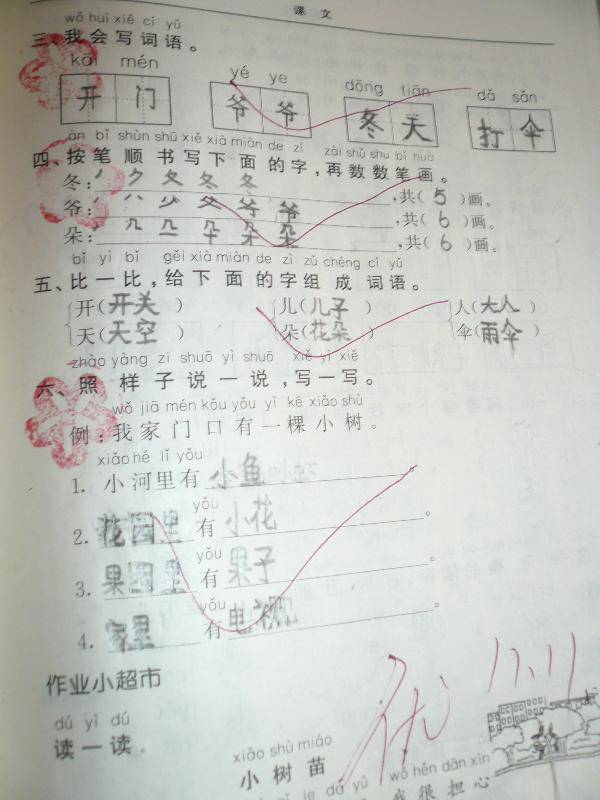 课 文
wǒ huì xiě cí yǔ
三、我会写词语。
kāi mén yé ye dōng tiān dǎ sǎn
开 门 爷 爷 冬 天 打 伞
àn bǐ shùn shū xiě xià miàn de zì zài shǔ shu bǐ huà
四、按 笔 顺 书 写 下 面 的 字,再 数 数 笔 画。
冬: ノ ク 夂 冬 冬 ,共( 5 )画。
爷: ノ 八 父 爷 爷 ,共( 6 )画。
朵: 几 朵 朵 ,共( 6 )画。
bǐ yì bǐ gěi xià miàn de zì zǔ chéng cí yǔ
五、比 一 比,给 下 面 的 字 组 成 词 语。
开(开关) 儿(儿子) 人(大人)
天(天空) 朵(花朵) 伞(雨伞)
zhào yàng zi shuō yì shuō xiě yì xiě
六、照 样 子 说 一 说,写 一 写。
wǒ jiā mén kǒu yǒu yì kē xiǎo shù
例:我 家 门 口 有 一 棵 小 树。
xiǎo hé lǐ yǒu
1. 小 河 里 有 小鱼
yǒu
2. 花园里 有 小花 。
yǒu
3. 果园里 有 果子 。
yǒu
4. 家里 有 电视 。
优 11.11
作业小超市
dú yì dú
读 一 读。
xiǎo shù miáo
小 树 苗
wǒ hěn dān xīn
我 很 担 心